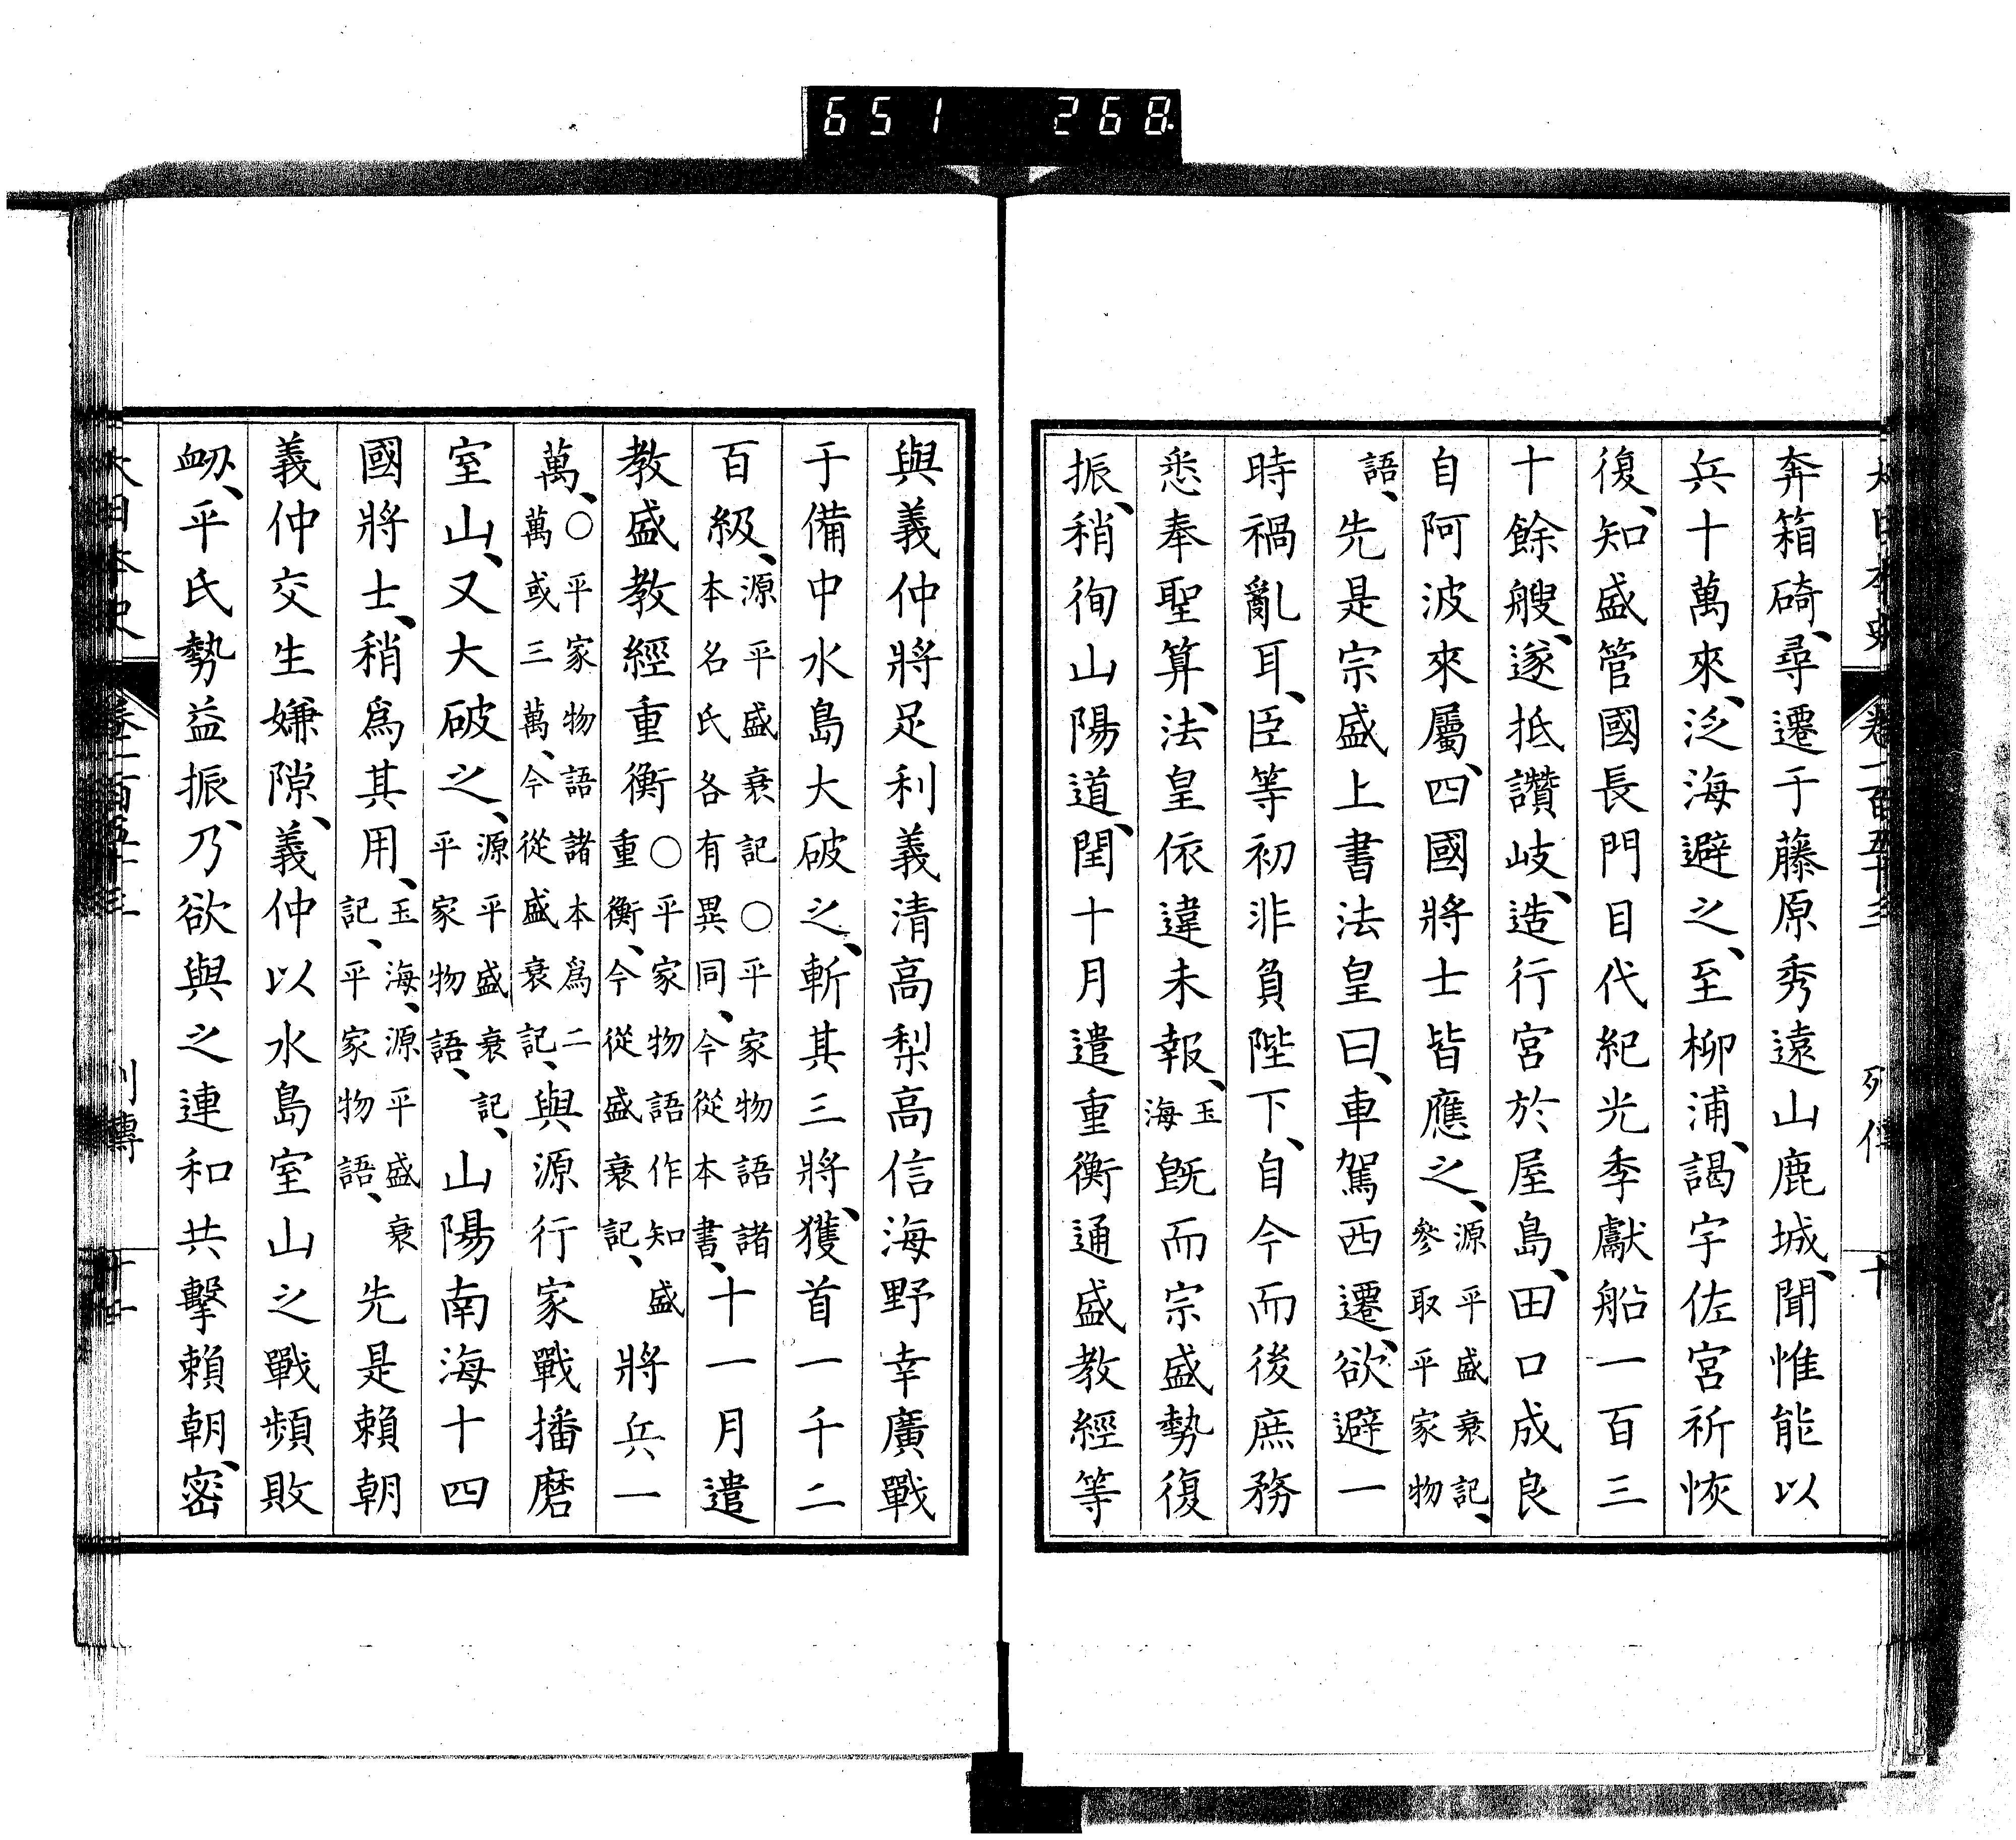 651 268
大日本史 卷一百五十三 列傳 十
奔箱碕、尋遷于藤原秀遠山鹿城、聞惟能以
兵十萬來、泛海避之、至柳浦、謁宇佐宮祈恢
復、知盛管國長門目代紀光季獻船一百三
十餘艘、遂抵讚岐、造行宮於屋島、田口成良
自阿波來屬、四國將士皆應之、源平盛衰記、參取平家物
語、先是宗盛上書法皇曰、車駕西遷、欲避一
時禍亂耳、臣等初非負陛下、自今而後庶務
悉奉聖算、法皇依違未報、玉海既而宗盛勢復
振、稍徇山陽道、閏十月遣重衡通盛教經等
與義仲將足利義清高梨高信海野幸廣戰
于備中水島大破之、斬其三將、獲首一千二
百級、源平盛衰記○平家物語諸本名氏各有異同、今從本書、十一月遣
教盛教經重衡○平家物語作知盛重衡、今從盛衰記、將兵一
萬、○平家物語諸本爲二萬或三萬、今從盛衰記、與源行家戰播磨
室山、又大破之、源平盛衰記、平家物語、山陽南海十四
國將士、稍爲其用、玉海、源平盛衰記、平家物語、先是賴朝
義仲交生嫌隙、義仲以水島室山之戰頻敗
衂、平氏勢益振、乃欲與之連和共擊賴朝、密
大日本史 卷一百五十三 列傳